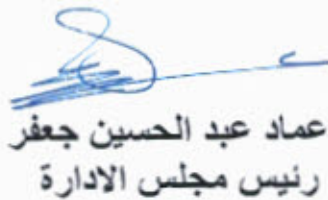 عماد عبد الحسين جعفر
رئيس مجلس الادارة